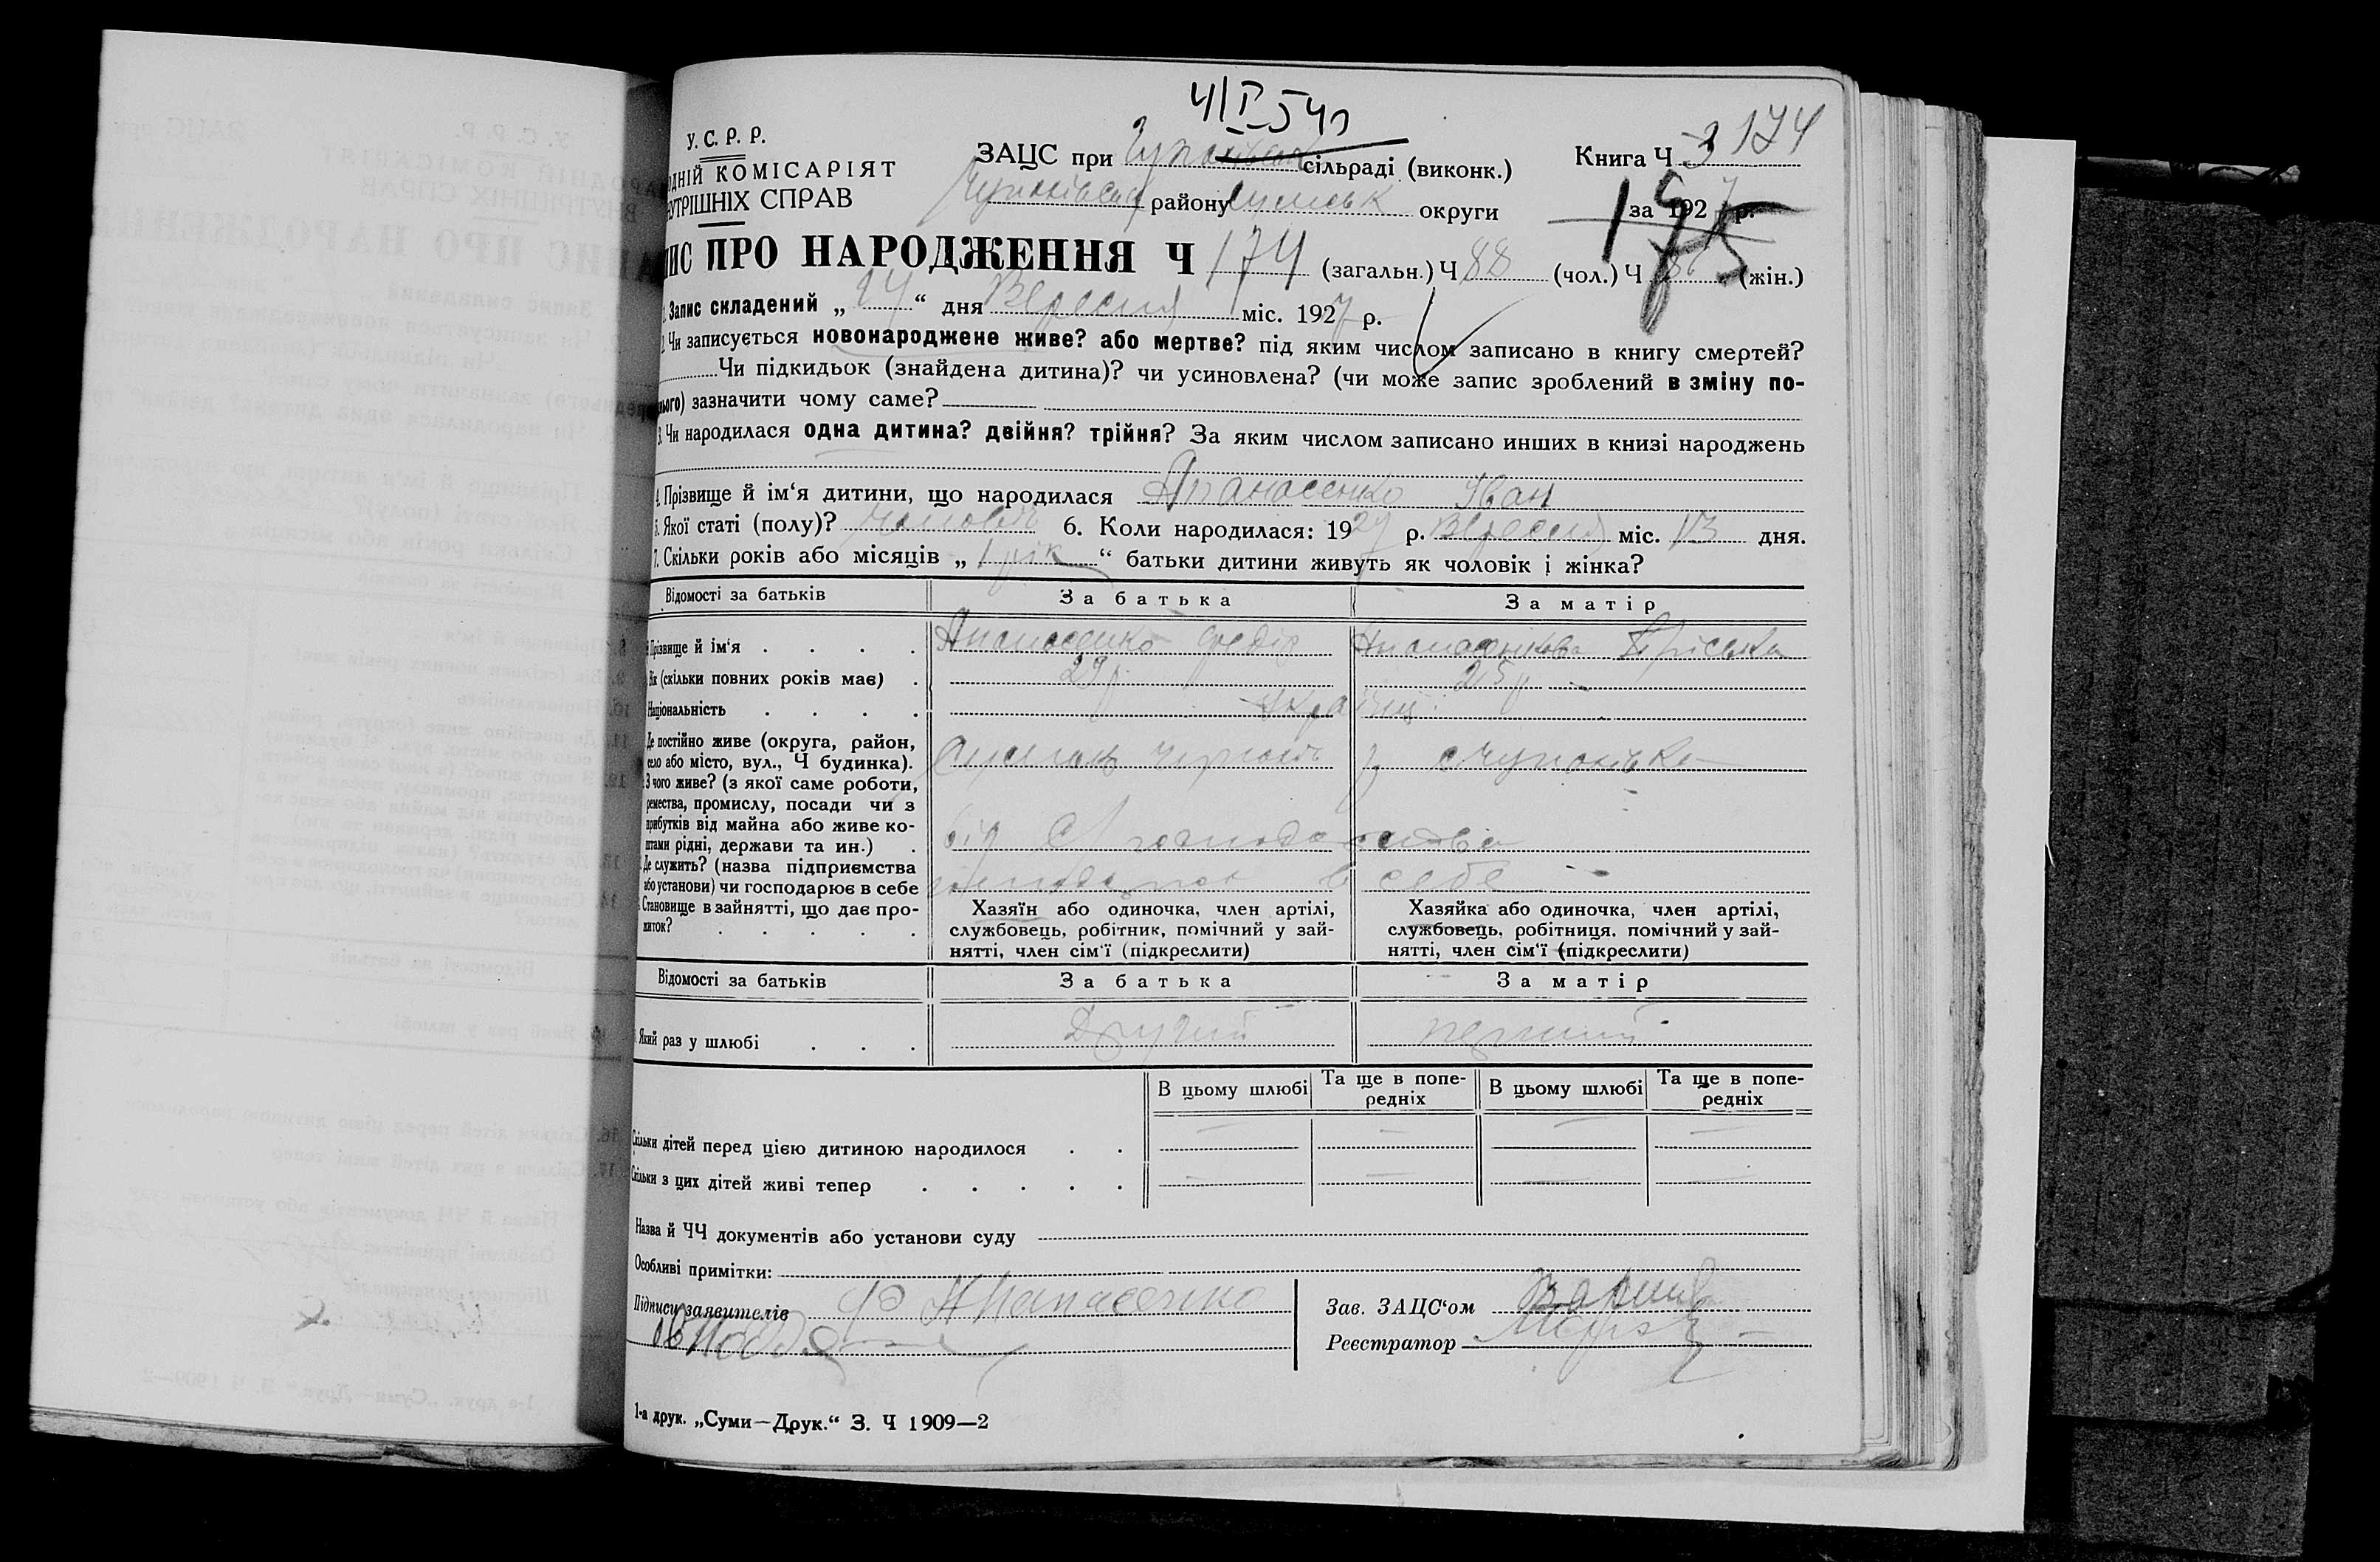 4/I-54р
У.С.Р.Р.
ОДНІЙ КОМІСАРІЯТ
УТРІШНІХ СПРАВ
ЗАЦС при сільраді (виконк.)
району округи
Книга Ч 3 174
за 1927 р.
175
ПИС ПРО НАРОДЖЕННЯ Ч 174 (загальн.) Ч 88 (чол.) Ч 86 (жін.)
1. Запис складений „ 24 “ дня Вересня міс. 1927 р.
2. Чи записується новонароджене живе? або мертве? під яким числом записано в книгу смертей?
Чи підкидьок (знайдена дитина)? чи усиновлена? (чи може запис зроблений в зміну по-
нього) зазначити чому саме?
3. Чи народилася одна дитина? двійня? трійня? За яким числом записано инших в книзі народжень
4. Прізвище й ім‘я дитини, що народилася Апанасенко Іван
5. Якої статі (полу)? чоловік 6. Коли народилася: 1927 р. Вересня міс. 13 дня.
7. Скільки років або місяців „ 1 рік “ батьки дитини живуть як чоловік і жінка?
Відомості за батьків За батька За матір
Прізвище й ім‘я . . . . Апанасенко Федір
Вік (скільки повних років має) . 29 р. 25 р
Національність . . . . Україн.
Де постійно живе (округа, район,
село або місто, вул., Ч будинка).
З чого живе? (з якої саме роботи,
ремества, промислу, посади чи з
прибутків від майна або живе ко-
штами рідні, держави та ин.) . від С господарства
Де служить? (назва підприємства
або установи) чи господарює в себе в себе
Становище в зайнятті, що дає про-
житок? . . . . .
Хазяїн або одиночка, член артілі,
службовець, робітник, помічний у зай-
нятті, член сім‘ї (підкреслити)
Хазяйка або одиночка, член артілі,
службовець, робітниця, помічний у зай-
нятті, член сім‘ї (підкреслити)
Відомості за батьків За батька За матір
Який раз у шлюбі . . . Другий перший
В цьому шлюбі Та ще в попе-
редніх В цьому шлюбі Та ще в попе-
редніх
Скільки дітей перед цією дитиною народилося . .
Скільки з цих дітей живі тепер . . . . .
Назва й ЧЧ документів або установи суду
Особливі примітки:
Підписи заявителів Ф Апанасенко
Зав. ЗАЦС‘ом
Реєстратор
1-а друк. „Суми—Друк.“ З. Ч 1909—2